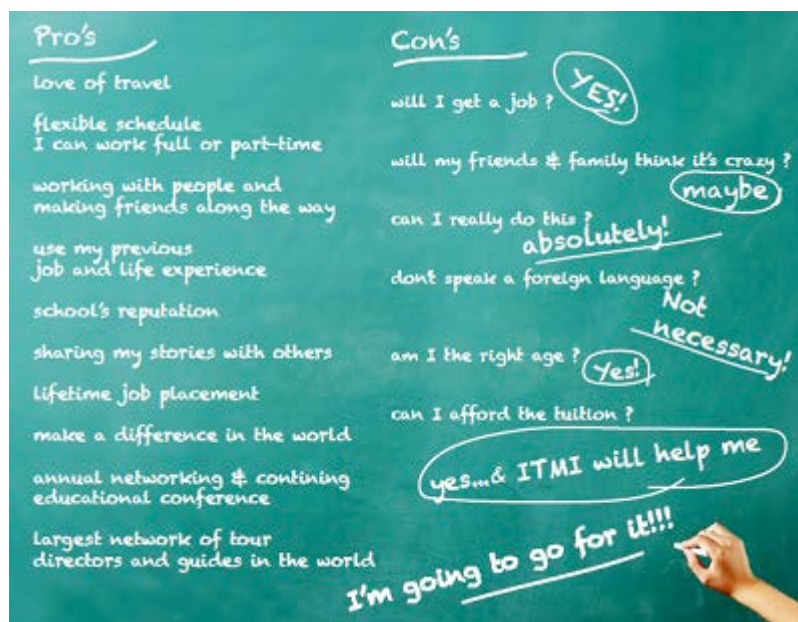 Pro's
love of travel
flexible schedule
I can work full or part-time
working with people and
making friends along the way
use my previous
job and life experience
school's reputation
sharing my stories with others
lifetime job placement
make a difference in the world
annual networking & contining
educational conference
largest network of tour
directors and guides in the world
Con's
will I get a job ?
YES!
will my friends & family think it's crazy ?
maybe
can I really do this ?
absolutely!
don't speak a foreign language ?
Not
necessary!
am I the right age ?
Yes!
can I afford the tuition ?
yes...& ITMI will help me
I'm going to go for it!!!